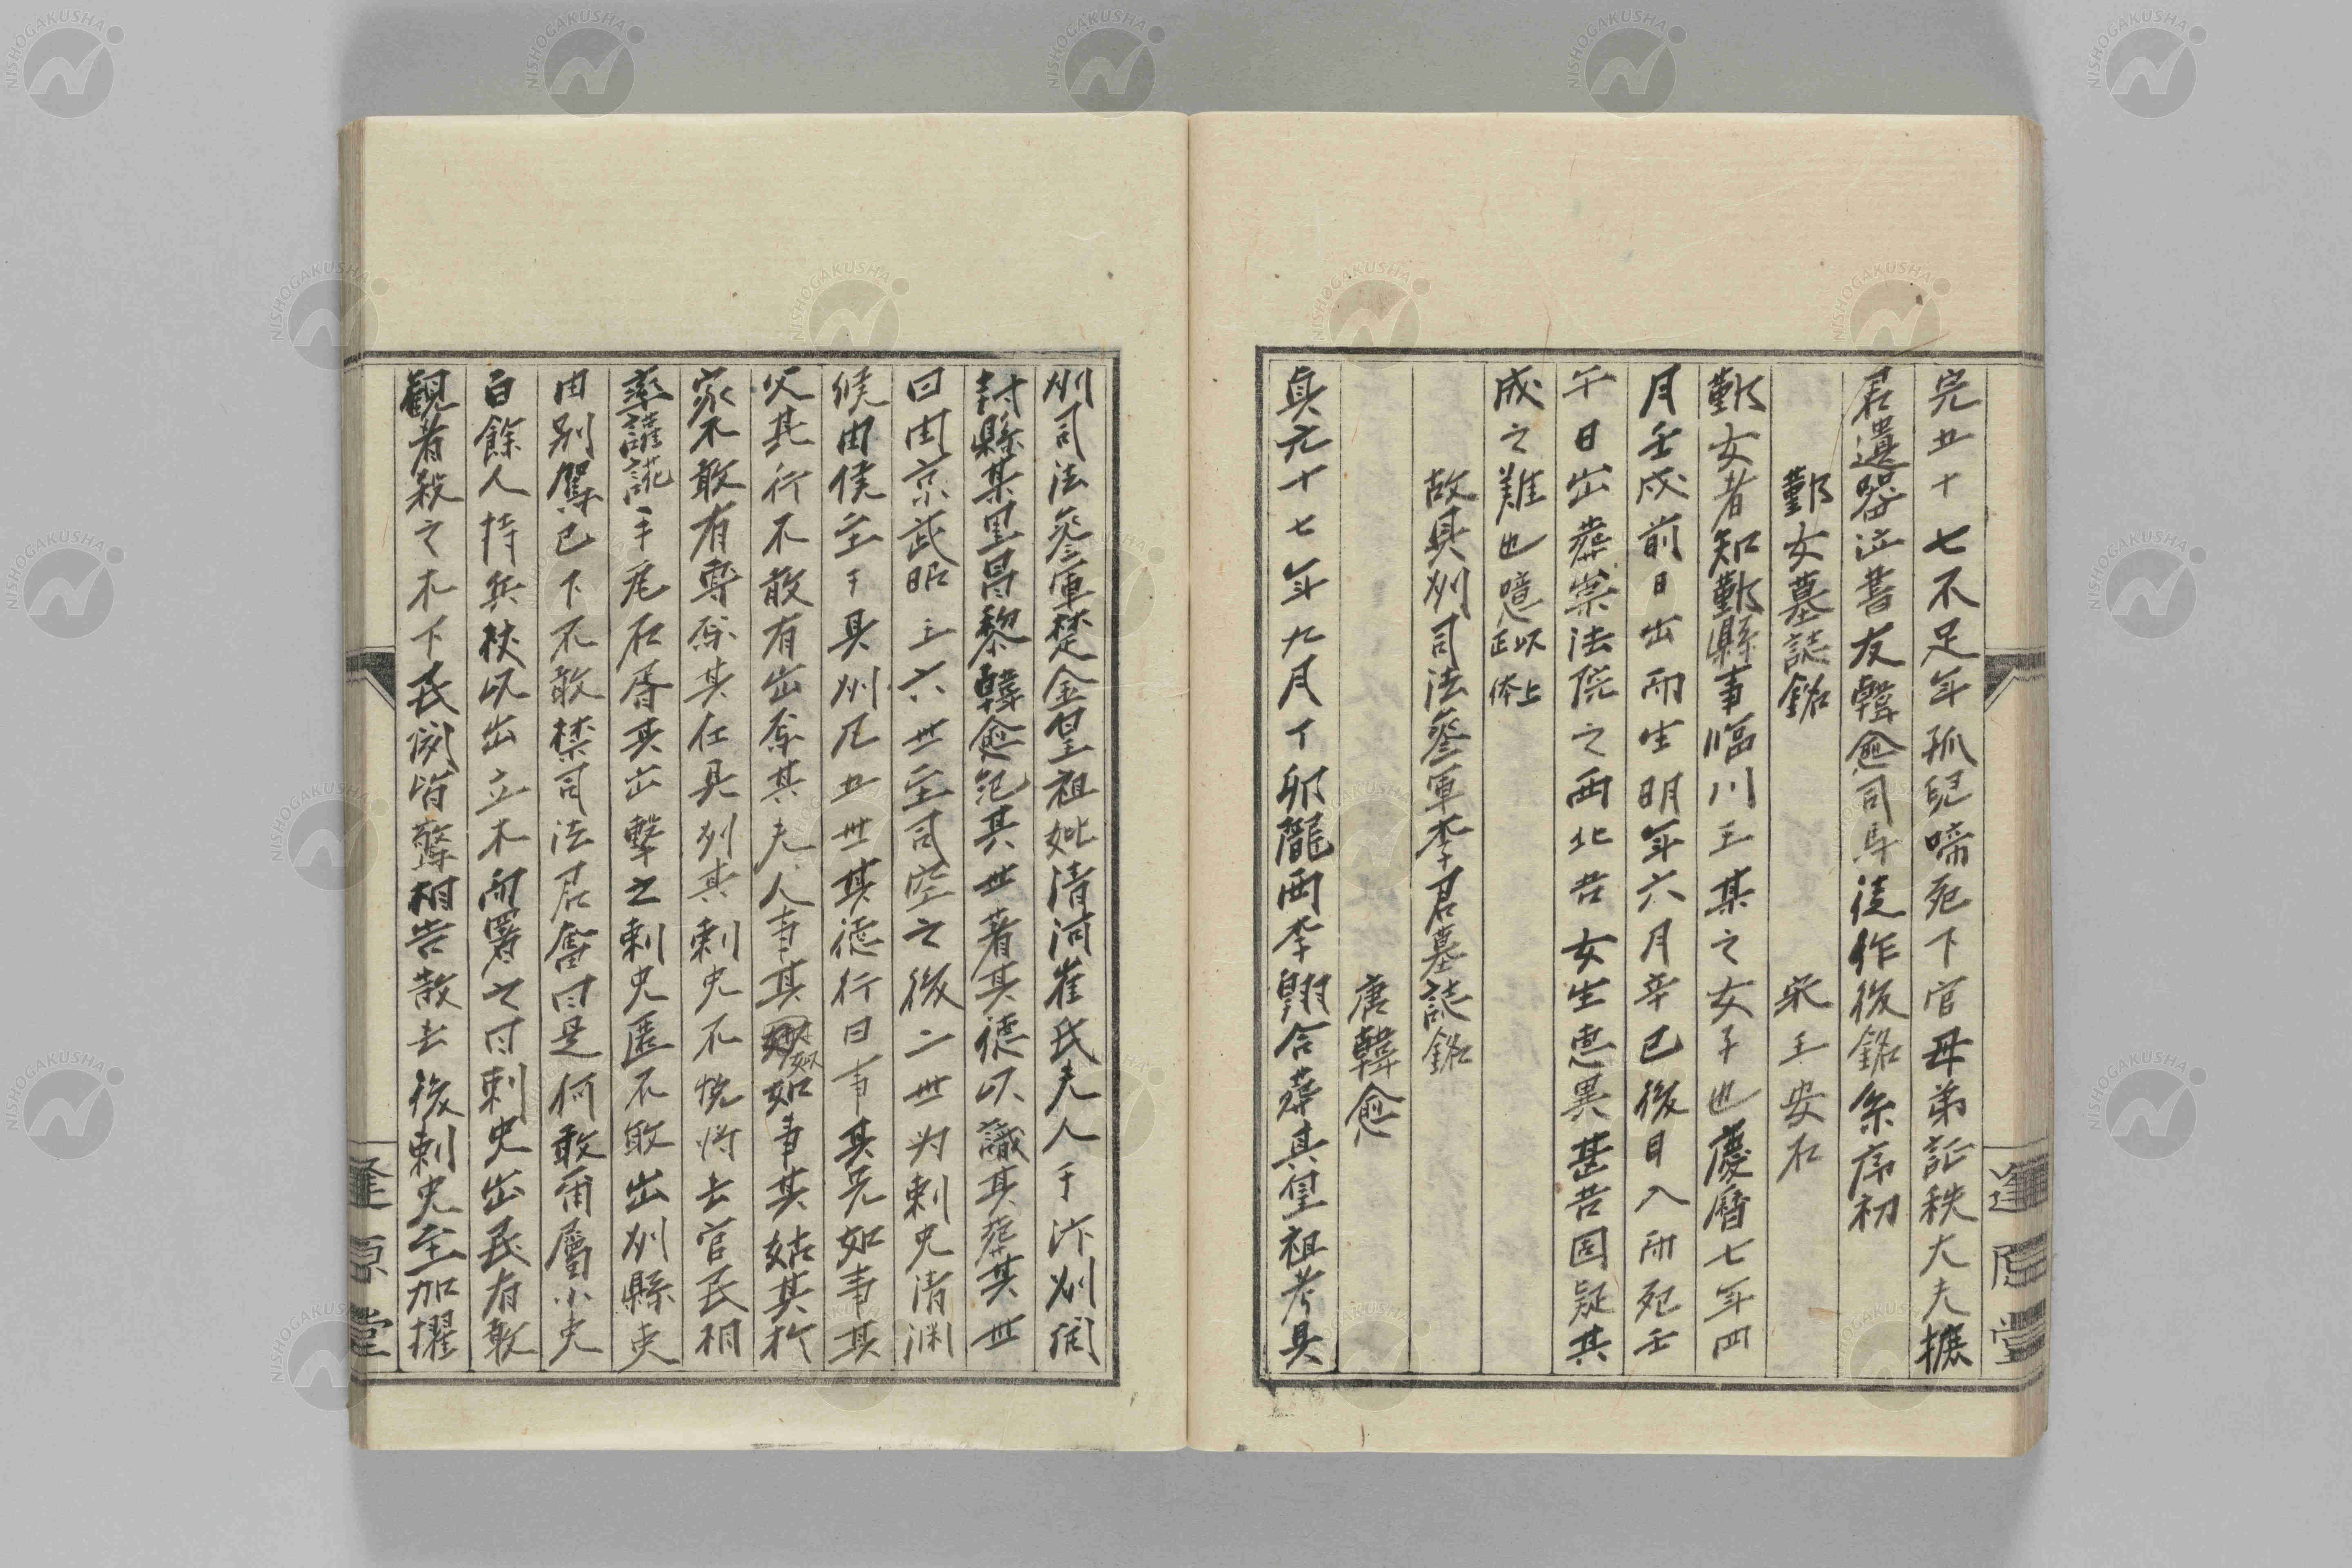 完五十七不足年孤兒啼死下官母弟証秩大夫摭
君遺器泣書友韓愈司馬徒作後銘系序初
鄞女墓誌銘　宋王安石
鄞女者知鄞縣事臨川王某之女子也慶曆七年四
月壬戌前日出而生明年六月辛巳後日入而死壬
午日出葬崇法院之西北吾女生惠異甚吾固疑其
成之難也噫以上正体
故貝州司法叅軍李君墓誌銘
唐韓愈
貞元十七年九月丁卯隴西李翱合葬其皇祖考貝
州司法叅軍楚金皇祖妣清河崔氏夫人于汴州開
封縣某里昌黎韓愈紀其世著其德以識其葬其世
曰由京武昭王六世至司空之後二世為刺史清淵
侯由侯至于貝州凡五世其德行曰事其兄如事其
父其行不敢有出焉其夫人事其姒如事其姑其於
家不敢有專焉其在貝州其刺史不悅將去官民相
率讙譁手瓦石胥其出擊之刺史匿不敢出州縣吏
由別駕已下不敢禁司法君奮曰是何敢爾屬小吏
百餘人持兵仗以出立木而署之曰刺史出民有敢
觀者殺之木下民聞皆驚相告散去後刺史至加擢
逢原堂
逢原堂
NISHOGAKUSHA